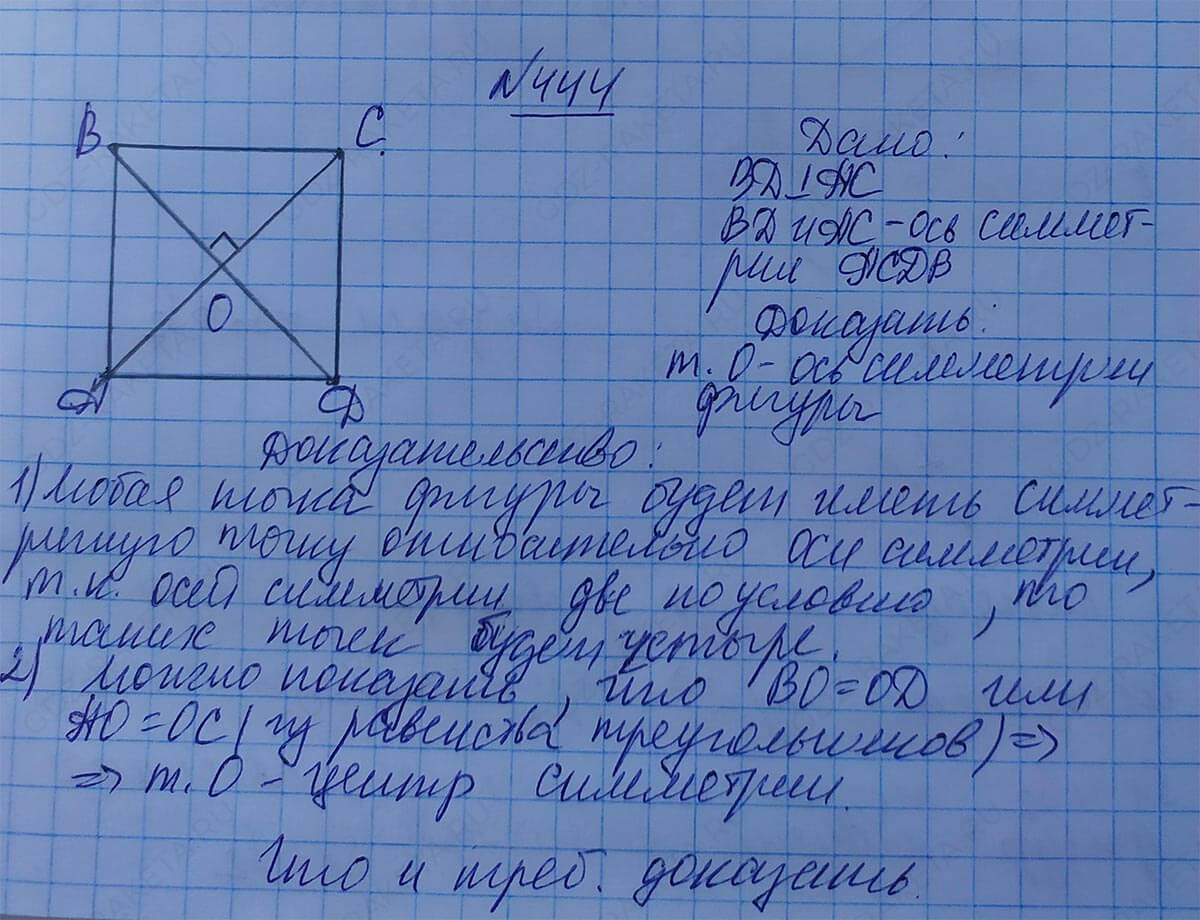 N444
B
C.
O
A
D
Дано:
BD⊥AC
BD и AC - ось симмет-
рии ACDB
Доказать:
т. O - ось симметрии
фигуры
Доказательство:
1) Любая точка фигуры будет иметь симмет-
ричную точку относительно оси симметрии,
т.к. осей симметрии две по условию, то
таких точек будет четыре.
2) Можно показать, что BO=OD или
AO=OC (из равенства треугольников) =>
=> т. O - центр симметрии.
Что и треб. доказать.